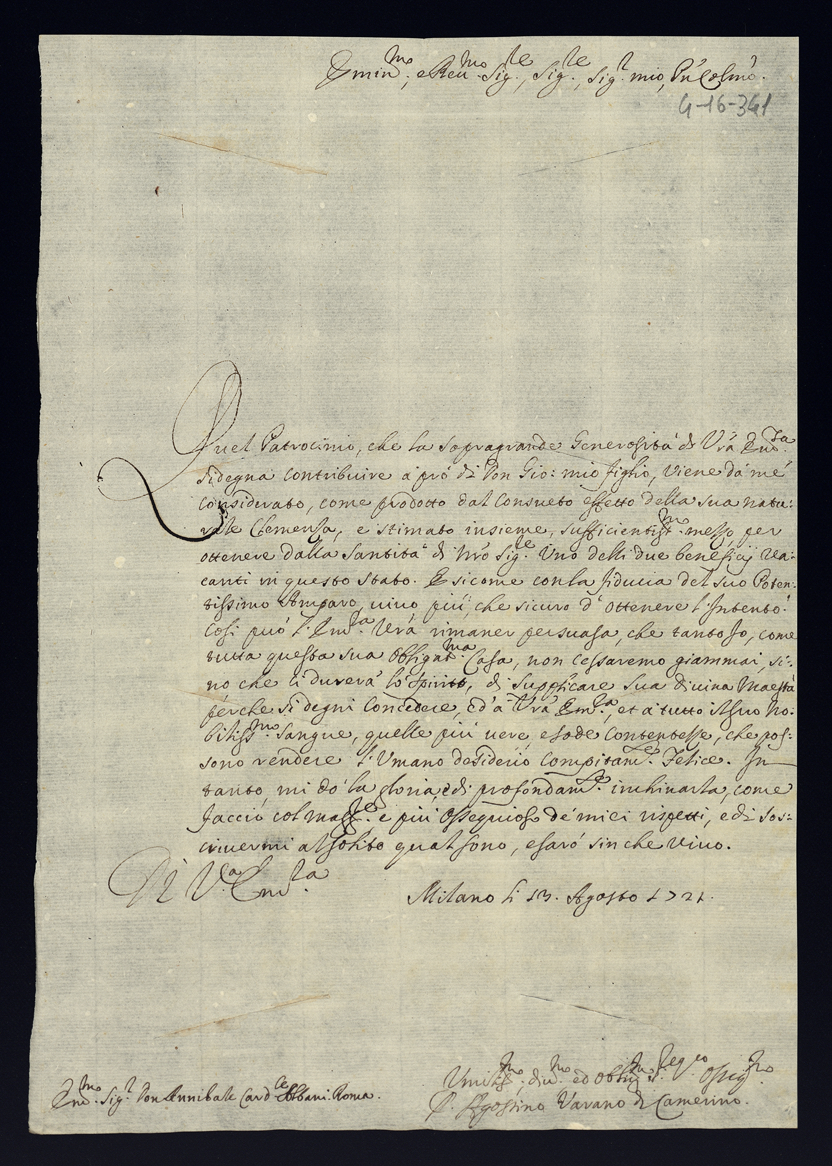 Emin.mo, e Reu.mo Sig.re, Sig.re, Sig.r mio, Pñ Colmo.
4-16-341
Quel Patrocinio, che la sopragrande Generosità di Vrã Em.za
si degna contribuire a pró di Don Gio: mio figlio, viene dá mé
considerato, come prodotto dal Consueto effetto della sua natu:
rale Clemenza, e stimato insieme, sufficientiss.mo mezzo per
ottenere dalla Santità di Nrõ Sig.re Uno delli due beneficij Va:
canti in questo stato. E sicome con la fiducia del suo Poten:
tissimo Amparo, uiuo piú, che sicuro d'ottenere l'Intento.
Cosi può l'Em.za Vrã rimaner persuasa, che tanto Io, come
tutta questa sua obligat.ma Casa, non cessaremo giammai, si:
no che ci durerà lo spirito, di supplicare Sua diuina Maestà
perche si degni Concedere, ed à Vrã Em.za, et à tutto il suo No:
biliss.mo Sangue, quelle piú uere, e sode Contentezze, che pos:
sono rendere l'Umano desiderio Compitam.te Felice. In
tanto mi dò la gloria, e di profondam.te inchinarla, come
faccio col mag.re e piú ossequioso de miei rispetti, e di sos:
criuermi al solito qual sono, e sarò sin che uiuo.
Di V.a Em.za
Milano li 13. Agosto 1721.
Em.mo Sig.r Don Annibale Card.le Albani. Roma.
Umiliss.mo, diu.mo ed oblig.mo Ser.re osseq.mo
D. Agostino Varano di Camerino.